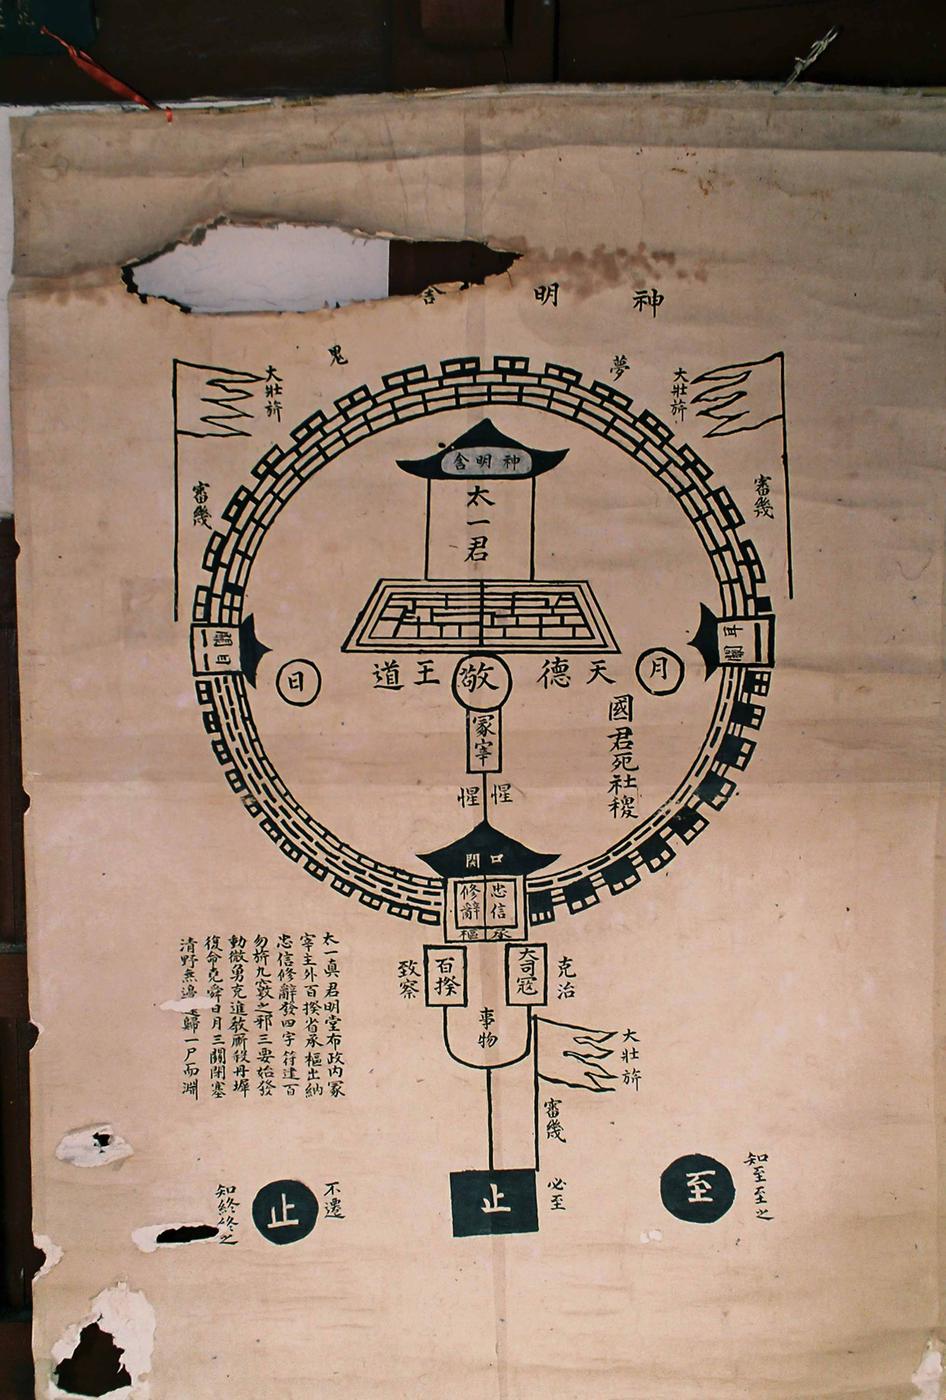 神明舍
夢
鬼
大壯旂
審幾
大壯旂
審幾
神明舍
太一君
耳關
目關
月
天德
敬
王道
日
國君死社稷
冢宰
惺惺
口關
忠信
修辭
承樞
大司寇
克治
百揆
致察
事物
大壯旂
審幾
太一眞君明堂布政內冢
宰主外百揆省承樞出納
忠信修辭發四字符建百
勿旂九竅之邪三要始發
動微勇克進敎廝殺丹墀
復命堯舜日月三關閉塞
清野無邊還歸一尸而淵
至
知至至之
止
必至
止
不遷
知終終之